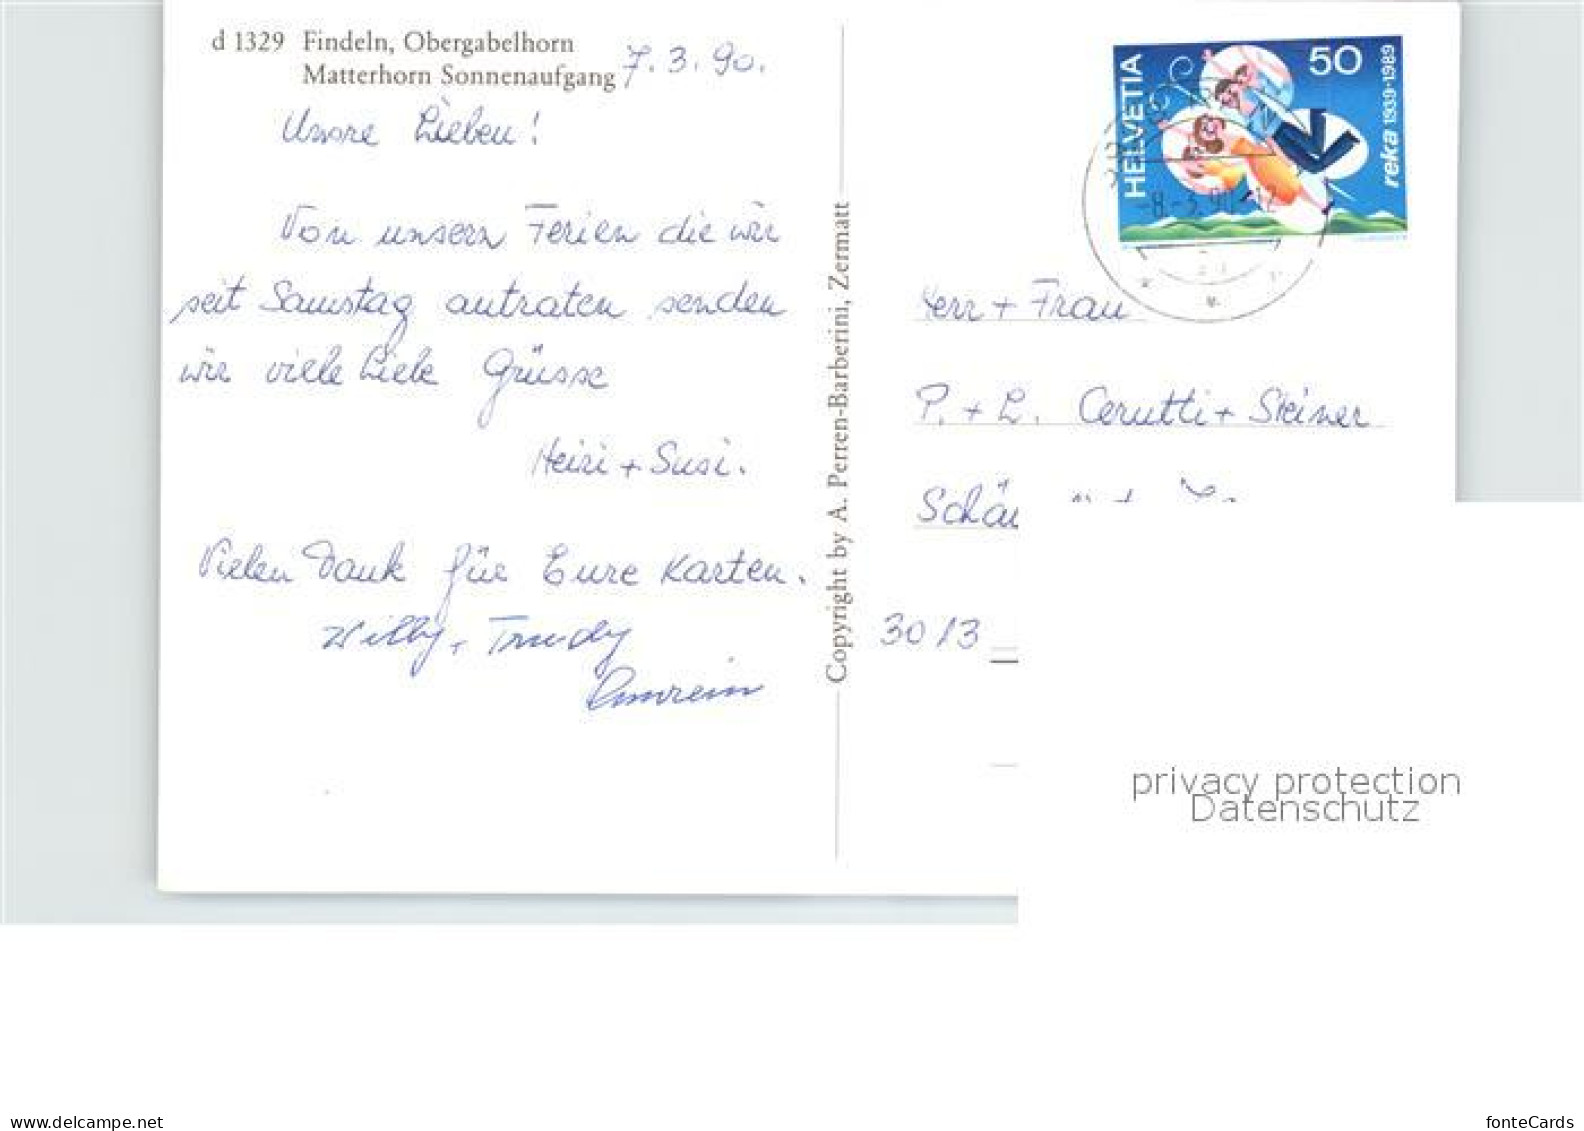 d 1329 Findeln, Obergabelhorn
Matterhorn Sonnenaufgang
7.3.90.
Unsre Lieben!
Von unsern Ferien die wir
seit Samstag antraten senden
wir viele Liebe Grüsse
Heiri + Susi.
Vielen Dank für Eure Karten.
Willy + Trudy
Amrein
Copyright by A. Perren-Barberini, Zermatt
HELVETIA
50
reka 1939-1989
-8.-3.90-12
Herr + Frau
P. + L. Cerutti + Steiner
3013
privacy protection
Datenschutz
www.picclickimg.com
fonteCards